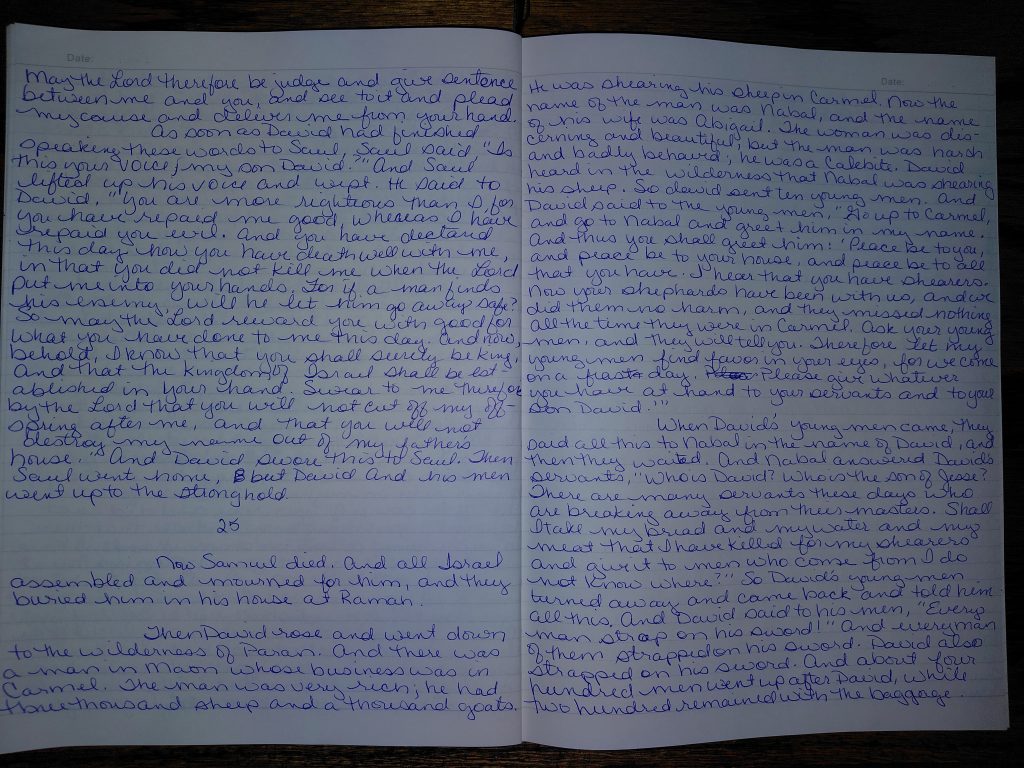 Date:
May the Lord therefore be judge and give sentence
between me and you, and see to it and plead
my cause and deliver me from your hand.
As soon as David had finished
speaking these words to Saul, Saul said "Is
this your voice, my son David?" And Saul
lifted up his voice and wept. He said to
David, "You are more righteous than I, for
you have repaid me good, whereas I have
repaid you evil. And you have declared
this day how you have dealt well with me,
in that you did not kill me when the Lord
put me into your hands. For if a man finds
his enemy, will he let him go away safe?
So may the Lord reward you with good for
what you have done to me this day. And now,
behold, I know that you shall surely be king,
and that the kingdom of Israel shall be est-
ablished in your hand. Swear to me therefore
by the Lord that you will not cut off my off-
spring after me, and that you will not
destroy my name out of my father's
house." And David swore this to Saul. Then
Saul went home, but David and his men
went up to the stronghold.
25
Now Samuel died. And all Israel
assembled and mourned for him, and they
buried him in his house at Ramah.
Then David rose and went down
to the wilderness of Paran. And there was
a man in Maon whose business was in
Carmel. The man was very rich; he had
three thousand sheep and a thousand goats.
Date:
He was shearing his sheep in Carmel. Now the
name of the man was Nabal, and the name
of his wife was Abigail. The woman was dis-
cerning and beautiful, but the man was harsh
and badly behavid; he was a Calebite. David
heard in the wilderness that Nabal was shearing
his sheep. So david sent ten young men. And
David said to the young men, "Go up to Carmel,
and go to Nabal and greet him in my name.
And thus you shall greet him: 'Peace be to you,
and peace be to your house, and peace be to all
that you have. I hear that you have shearers.
Now your shephards have been with us, and we
did them no harm, and they missed nothing
all the time they were in Carmel. Ask your young
men, and they will tell you. Therefore let my
young men find favor in your eyes, for we come
on a feast day. Please give whatever
you have at hand to your servants and to your
son David.'"
When David's young men came, they
said all this to Nabal in the name of David, and
then they waited. And Nabal answered David's
servants, "Who is David? Who is the son of Jesse?
There are many servants these days who
are breaking away from their masters. Shall
I take my bread and my water and my
meat that I have killed for my shearers
and give it to men who come from I do
not know where?" So David's young men
turned away and came back and told him
all this. And David said to his men, "Every
man strap on his sword!" And every man
of them strapped on his sword. David also
strapped on his sword. And about four
hundred men went up after David, while
two hundred remained with the baggage.